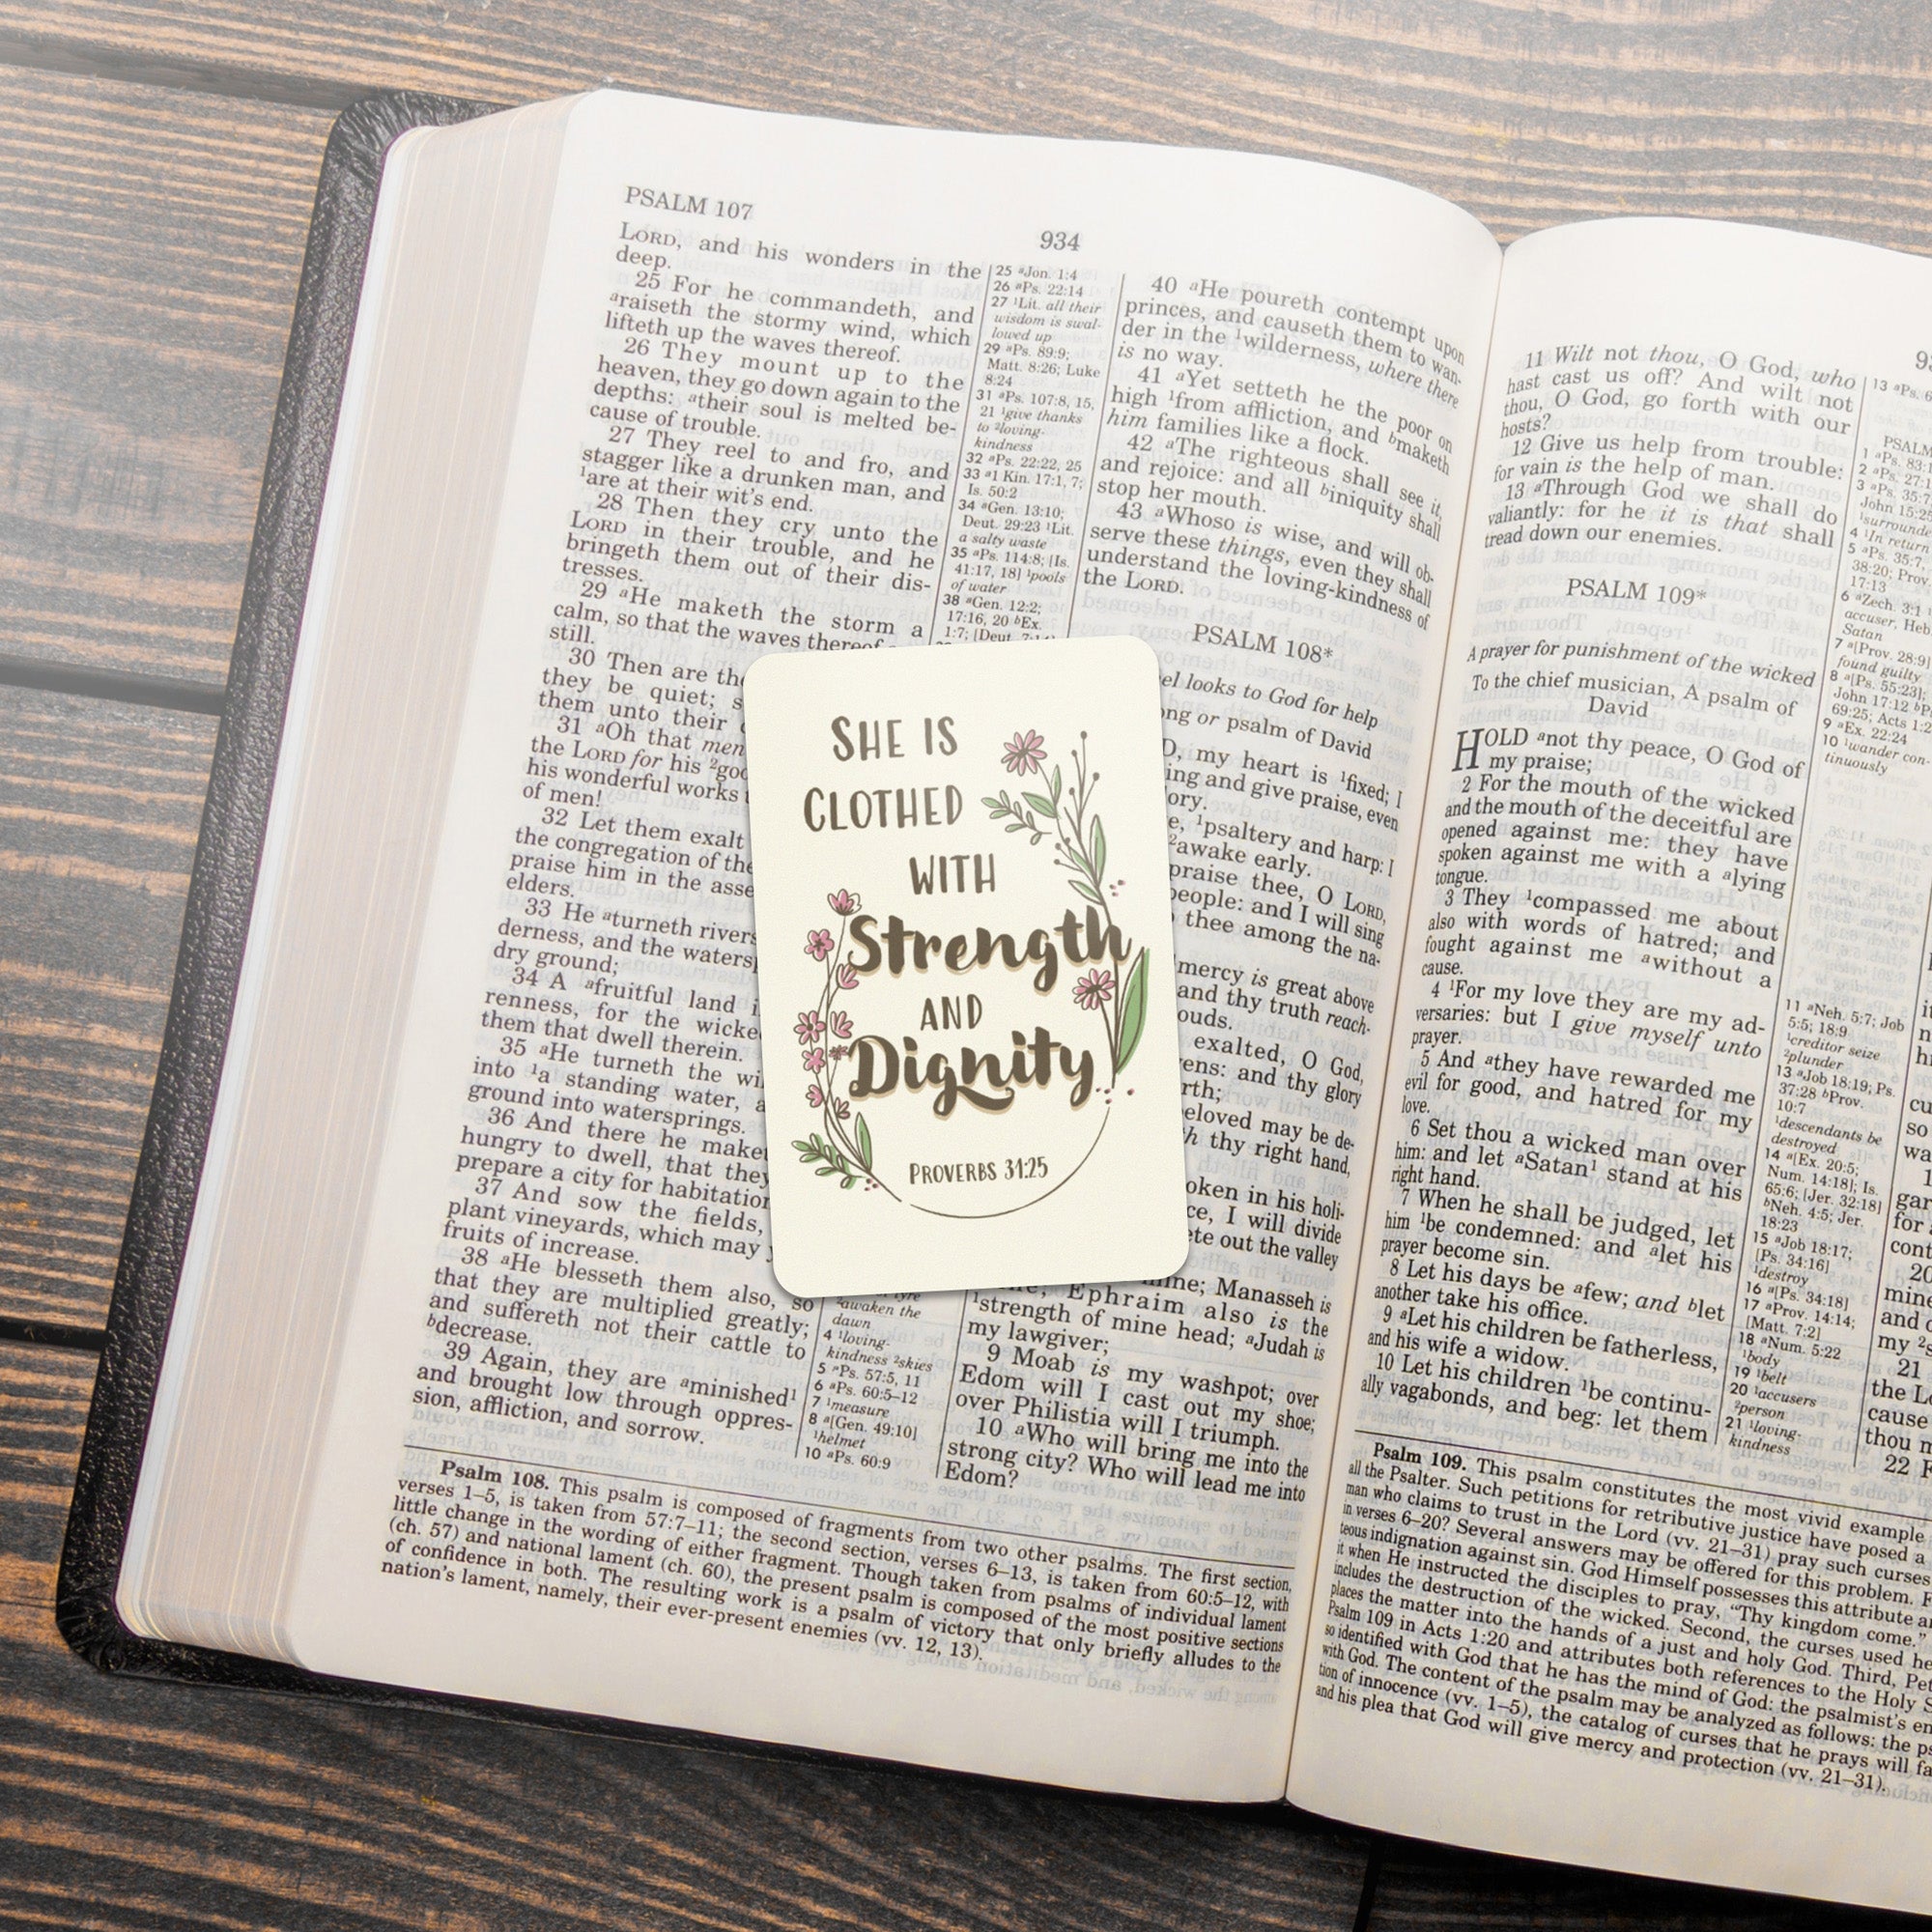 PSALM 107
934
LORD, and his wonders in the
deep.
25 For he commandeth, and
ᵃraiseth the stormy wind, which
lifteth up the waves thereof.
26 They mount up to the
heaven, they go down again to the
depths: ᵃtheir soul is melted be-
cause of trouble.
27 They reel to and fro, and
stagger like a drunken man, and
¹are at their wit's end.
28 Then they cry unto the
LORD in their trouble, and he
bringeth them out of their dis-
tresses.
29 ᵃHe maketh the storm a
calm, so that the waves thereof
still.
30 Then are
they be quiet;
them unto their
31 ᵃOh that men
the LORD for his
his wonderful works
of men!
32 Let them exalt
the congregation of the
praise him in the
elders.
33 He ᵃturneth rivers
derness, and the
dry ground;
34 A ᵃfruitful land
renness, for the
them that dwell therein.
35 ᵃHe turneth the
into ¹a standing water,
ground into watersprings.
36 And there he
hungry to dwell, that they
prepare a city for
37 And sow the fields,
plant vineyards, which may
fruits of increase.
38 ᵃHe blesseth them also, so
that they are multiplied greatly;
and suffereth not their cattle to
ᵇdecrease.
39 Again, they are ᵃminished¹
and brought low through oppres-
sion, affliction, and sorrow.
25 ᵃJon. 1:4
26 ᵃPs. 22:14
27 ¹Lit. all their
wisdom is swal-
lowed up
29 ᵃPs. 89:9;
Matt. 8:26; Luke
8:24
31 ᵃPs. 107:8, 15,
21 ¹give thanks
to ²loving-
kindness
32 ᵃPs. 22:22, 25
33 ᵃ1 Kin. 17:1, 7;
Is. 50:2
34 ᵃGen. 13:10;
Deut. 29:23 ¹Lit.
a salty waste
35 ᵃPs. 114:8; [Is.
41:17, 18] ¹pools
of water
38 ᵃGen. 12:2;
17:16, 20 ᵇEx.
1:7; [Deut.
SHE IS
CLOTHED
WITH
Strength
AND
Dignity
PROVERBS 31:25
²awaken the
dawn
4 ¹loving-
kindness ²skies
5 ᵃPs. 57:5, 11
6 ᵃPs. 60:5–12
7 ¹measure
8 ᵃ[Gen. 49:10]
¹helmet
10 ᵃPs. 60:9
40 ᵃHe poureth contempt upon
princes, and causeth them to wan-
der in the ¹wilderness, where there
is no way.
41 ᵃYet setteth he the poor on
high ¹from affliction, and ᵇmaketh
him families like a flock.
42 ᵃThe righteous shall see it,
and rejoice: and all ᵇiniquity shall
stop her mouth.
43 ᵃWhoso is wise, and will ob-
serve these things, even they shall
understand the loving-kindness of
the LORD.
PSALM 108*
looks to God for help
or psalm of David
my heart is ¹fixed; I
and give praise, even
¹psaltery and harp: I
²awake early.
praise thee, O LORD,
people: and I will sing
thee among the na-
mercy is great above
and thy truth reach-
exalted, O God,
and thy glory
may be de-
thy right hand,
in his holi-
I will divide
out the valley
mine; Manasseh is
Ephraim also is the
¹strength of mine head; ᵃJudah is
my lawgiver;
9 Moab is my washpot; over
Edom will I cast out my shoe;
over Philistia will I triumph.
10 ᵃWho will bring me into the
strong city? Who will lead me into
Edom?
Psalm 108. This psalm is composed of fragments from two other psalms. The first section,
verses 1–5, is taken from 57:7–11; the second section, verses 6–13, is taken from 60:5–12, with
little change in the wording of either fragment. Though taken from psalms of individual lament
(ch. 57) and national lament (ch. 60), the present psalm is composed of the most positive sections
of confidence in both. The resulting work is a psalm of victory that only briefly alludes to the
nation's lament, namely, their ever-present enemies (vv. 12, 13).
11 Wilt not thou, O God, who
hast cast us off? And wilt not
thou, O God, go forth with our
hosts?
12 Give us help from trouble:
for vain is the help of man.
13 ᵃThrough God we shall do
valiantly: for he it is that shall
tread down our enemies.
PSALM 109*
A prayer for punishment of the wicked
To the chief musician, A psalm of
David
HOLD ᵃnot thy peace, O God of
my praise;
2 For the mouth of the wicked
and the mouth of the deceitful are
opened against me: they have
spoken against me with a ᵃlying
tongue.
3 They ¹compassed me about
also with words of hatred; and
fought against me ᵃwithout a
cause.
4 ¹For my love they are my ad-
versaries: but I give myself unto
prayer.
5 And ᵃthey have rewarded me
evil for good, and hatred for my
love.
6 Set thou a wicked man over
him: and let ᵃSatan¹ stand at his
right hand.
7 When he shall be judged, let
him ¹be condemned: and ᵃlet his
prayer become sin.
8 Let his days be ᵃfew; and ᵇlet
another take his office.
9 ᵃLet his children be fatherless,
and his wife a widow.
10 Let his children ¹be continu-
ally vagabonds, and beg: let them
13 ᵃPs.
PSALM
1 ᵃPs.
2 ᵃPs.
3 ᵃPs.
John
4 ¹In return
5 ᵃPs. 35:7,
38:20; Prov.
17:13
6 ᵃZech. 3:1
accuser, Heb
Satan
7 ᵃ[Prov. 28:9]
found guilty
8 ᵃ[Ps. 55:23];
John 17:12
69:25; Acts
9 ᵃEx. 22:24
10 ¹wander con-
tinuously
11 ᵃNeh. 5:7; Job
5:5; 18:9
¹creditor seize
²plunder
13 ᵃJob 18:19; Ps.
37:28 ᵇProv.
10:7
¹descendants be
destroyed
14 ᵃ[Ex. 20:5;
Num. 14:18]; Is.
65:6; [Jer. 32:18]
ᵇNeh. 4:5; Jer.
18:23
15 ᵃJob 18:17;
[Ps. 34:16]
¹destroy
16 ᵃ[Ps. 34:18]
17 ᵃProv. 14:14;
[Matt. 7:2]
18 ᵃNum. 5:22
¹body
19 ¹belt
20 ¹accusers
²person
21 ¹loving-
kindness
21
the
cause
thou
22
Psalm 109. This psalm constitutes the most vivid example
all the Psalter. Such petitions for retributive justice have posed a
man who claims to trust in the Lord (vv. 21–31) pray such curses
in verses 6–20? Several answers may be offered for this problem.
teous indignation against sin. God Himself possesses this attribute
it when He instructed the disciples to pray, "Thy kingdom come."
includes the destruction of the wicked. Second, the curses used
places the matter into the hands of a just and holy God. Third,
Psalm 109 in Acts 1:20 and attributes both references to the Holy
so identified with God that he has the mind of God: the psalmist's
with God. The content of the psalm may be analyzed as follows: the
tion of innocence (vv. 1–5), the catalog of curses that he prays will
and his plea that God will give mercy and protection (vv. 21–31).